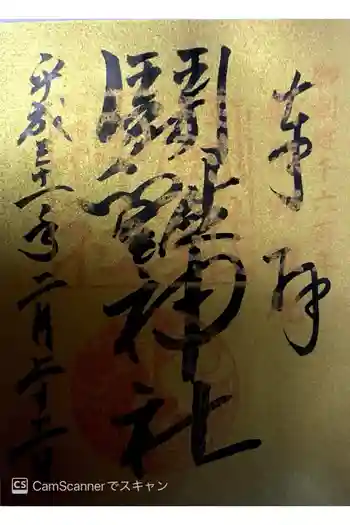 奉拝
鬪雞神社
平成三十一年二月二十二日
CS CamScannerでスキャン